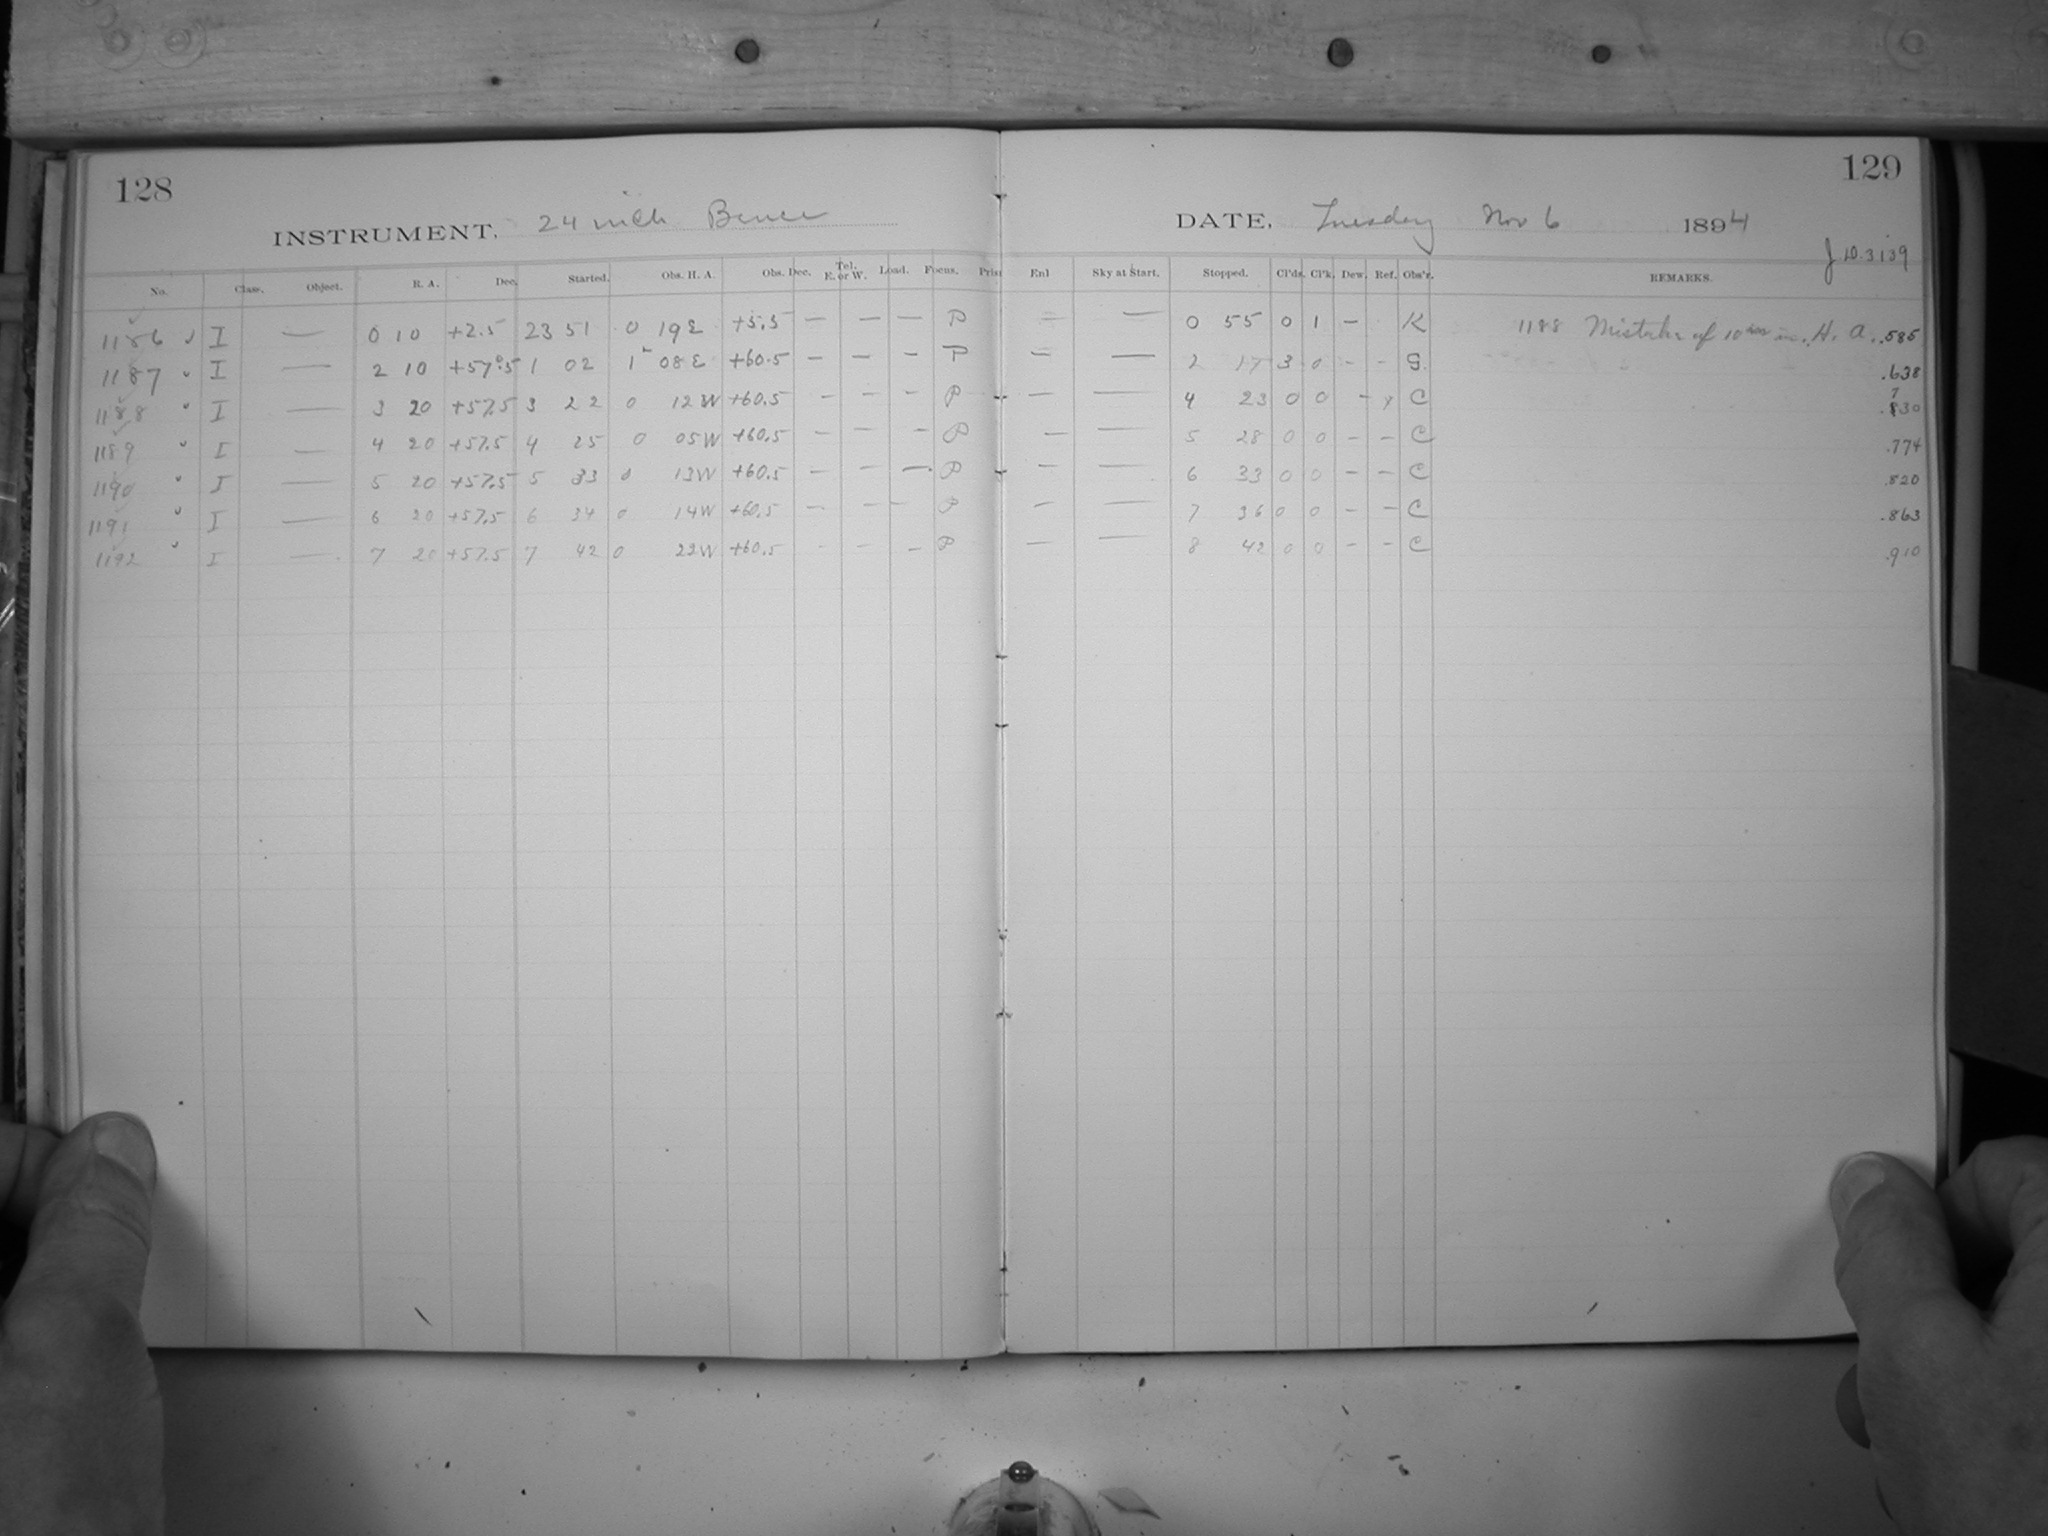 128
129
INSTRUMENT, 24 inch Bruce
DATE, Tuesday Nov 6 1894
J 10.3139
No. Class. Object. R. A. Dec. Started. Obs. H. A. Obs. Dec. Tel. E. or W. Load. Focus. Pris Enl Sky at Start. Stopped. Cl'ds. Cl'k. Dew. Ref. Obs'r. REMARKS.
1186 I — 0 10 +2.5 23 51 0 19 E +5.5 — — — P — — 0 55 0 1 — K 1188 Mistake of 10 in H. A. .585
1187 I — 2 10 +57°.5 1 02 1h 08 E +60.5 — — — P — — 2 17 3 0 — — G. .638
1188 I — 3 20 +57.5 3 22 0 12 W +60.5 — — — P — — 4 23 0 0 — C 7 .830
1189 I — 4 20 +57.5 4 25 0 05 W +60.5 — — — P — — 5 28 0 0 — — C .774
1190 I — 5 20 +57.5 5 33 0 13 W +60.5 — — — P — — 6 33 0 0 — — C .820
1191 I — 6 20 +57.5 6 34 0 14 W +60.5 — — — P — — 7 36 0 0 — — C .863
1192 I — 7 20 +57.5 7 42 0 22 W +60.5 — — — P — — 8 42 0 0 — — C .910